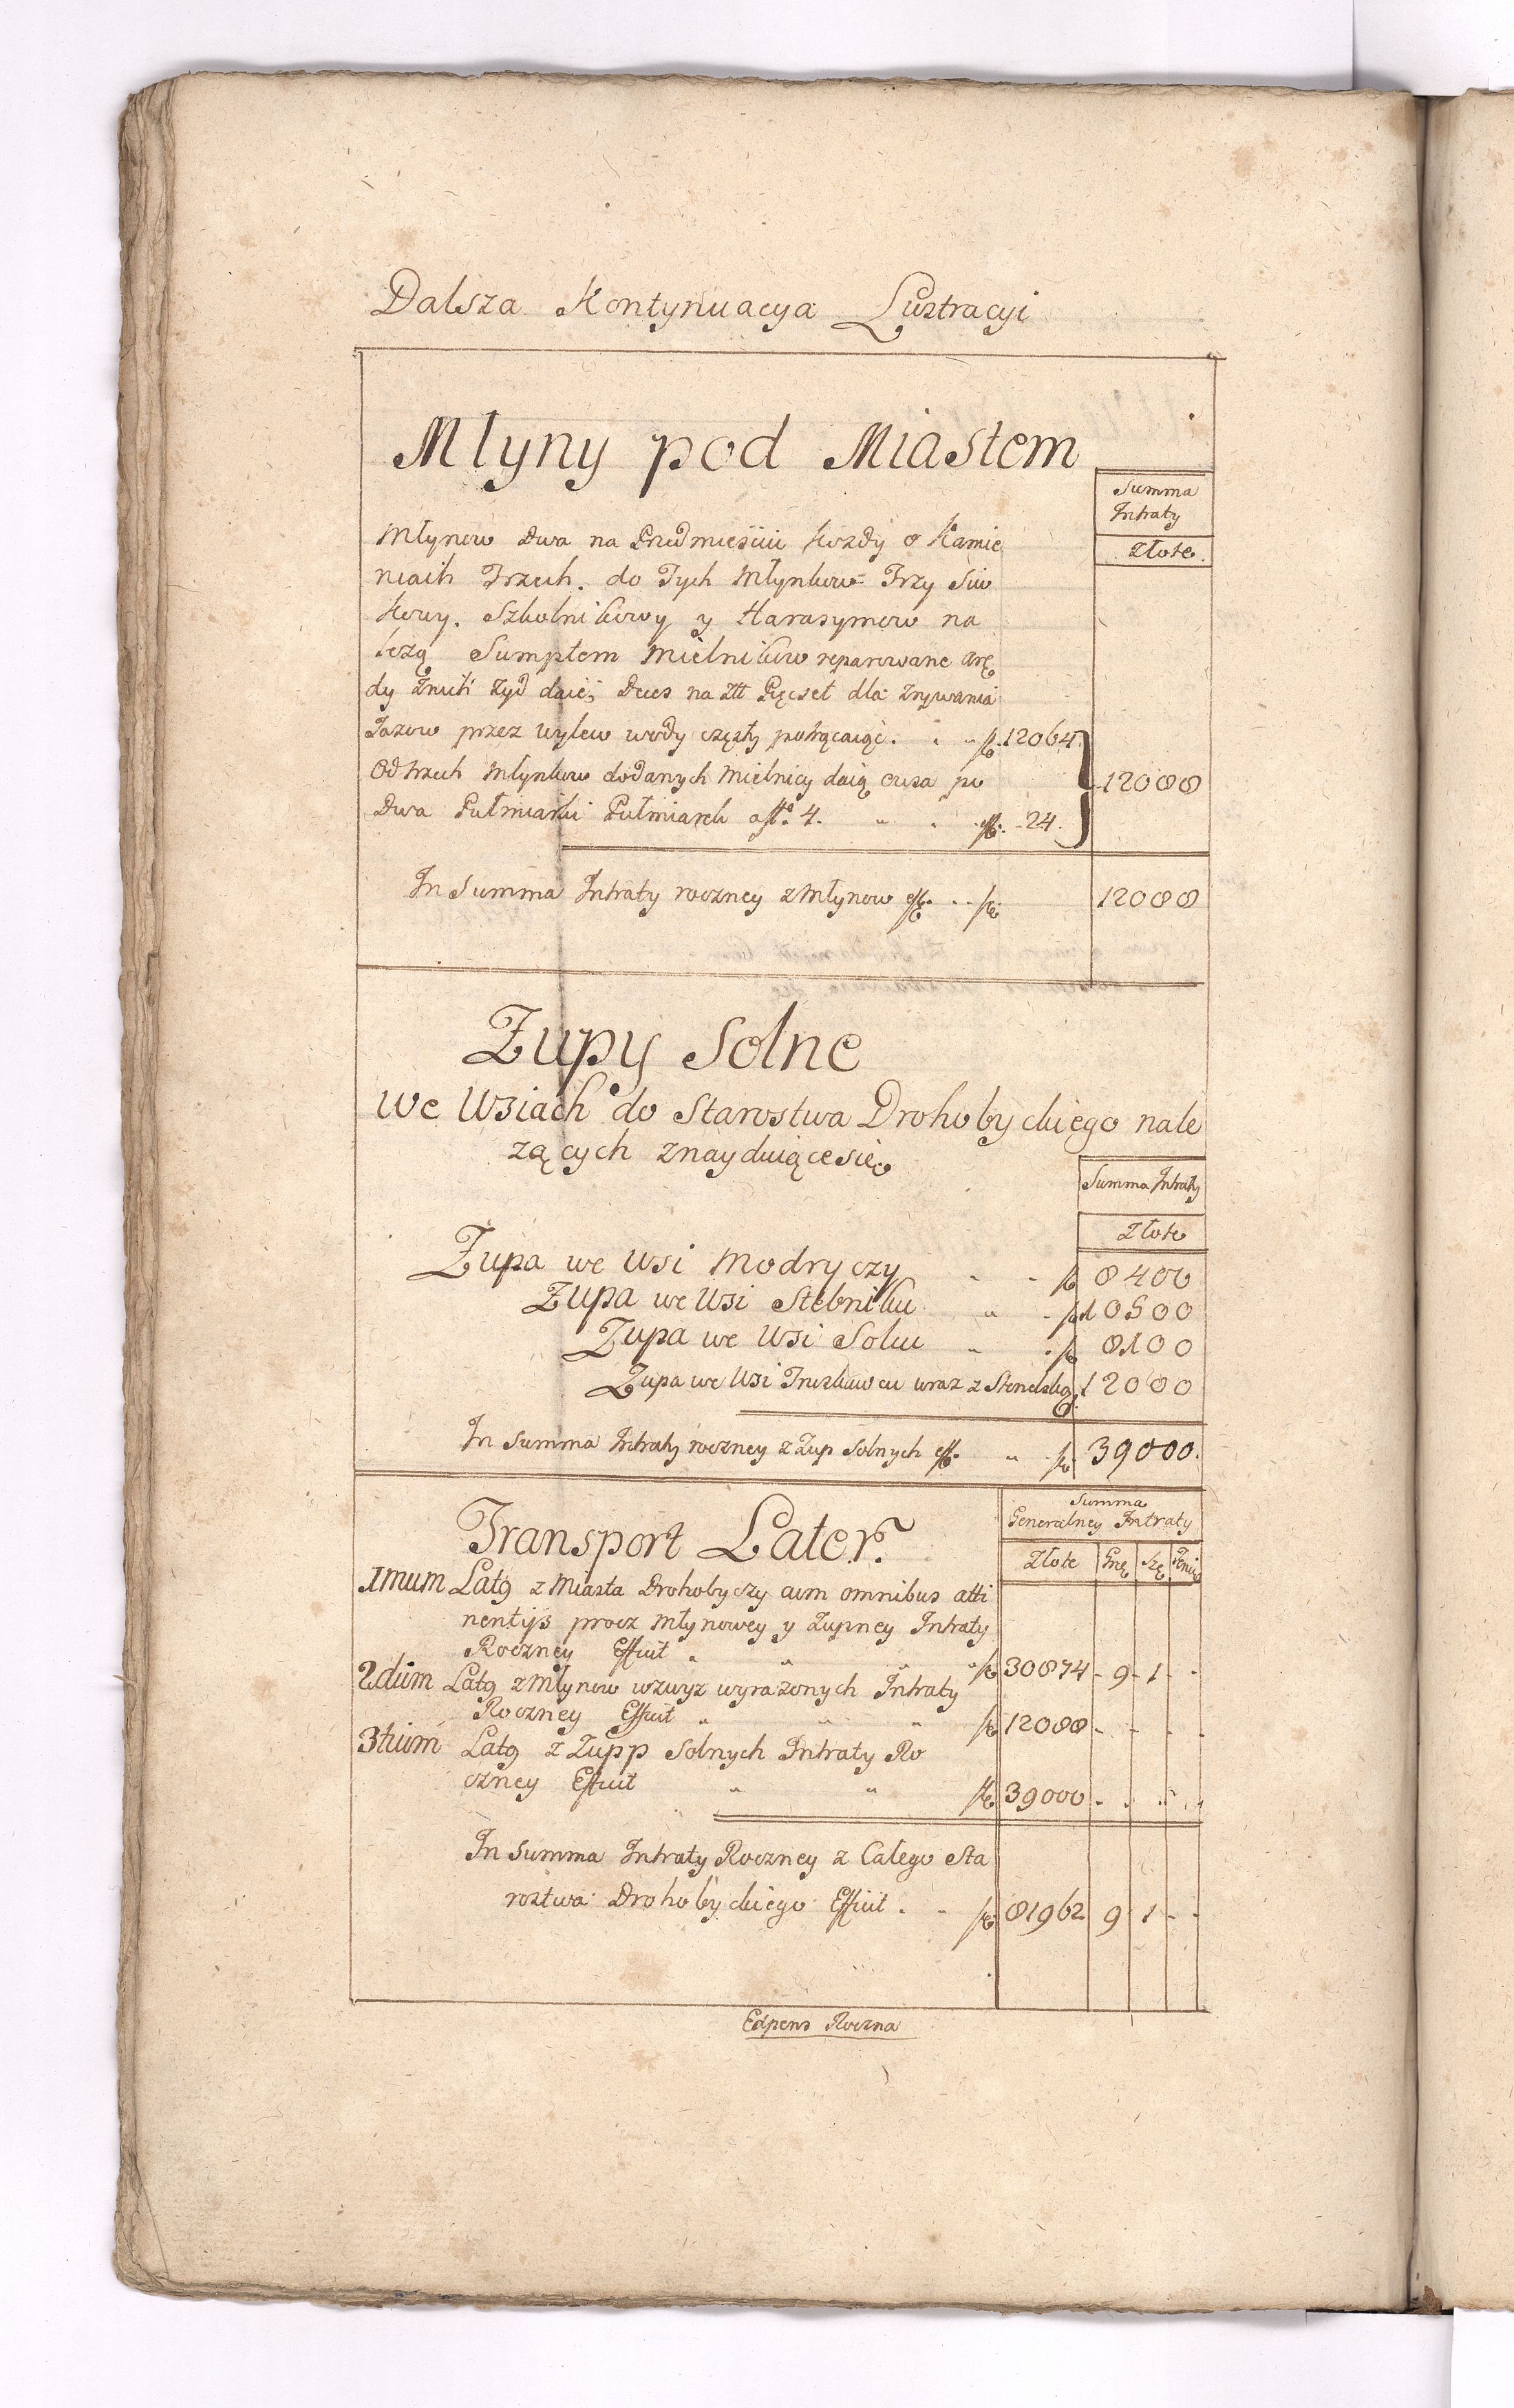 Dalsza Kontynuacya Lustracyi
Młyny pod Miastem
Summa
Intraty
Złote.
Młynow Dwa na Przedmiesciu kozdy o Kamie
niach Trzech. do Tych Młynkow Trzy Siw
kowy. Szkolnikowy y Harasymow na
lezą Sumptem Mielnikow reparowane Arę
dy Zyd daie na Złł Pięcset dla Zrywania
Jazow przez wylew wody częsty potrącaiąc. 12064.
Od trzech Młynkow dodanych Mielnicy daią owsa po
Dwa Pułmiarki Pułmiarek a fł. 4. 24.
12088
In Summa Intraty roczney z Młynow eff. 12088
Zupy Solne
We Wsiach do Starostwa Drohobyckiego nale
zących znayduiące się
Summa Intraty
Złote
Zupa we Wsi Modryczy 8400
Zupa we Wsi Stebniku 10500
Zupa we Wsi Solcu 8100
Zupa we Wsi Truskawcu wraz z 12000
In Summa Intraty roczney z Zup Solnych eff. 39000.
Summa
Generalney Intraty
Transport Later.
Złote
1mum Latg z Miasta Drohobyczy cum omnibus atti
nentijs procz Młynowey y Zupney Intraty
Roczney Efficit 30874 - 9 - 1 - -
2dum Latg z Młynow wzwyz wyrazonych Intraty
Roczney Efficit 12088 - - - -
3tium Latg z Zupp Solnych Intraty Ro
czney Efficit 39000 - - - -
In Summa Intraty Roczney z Całego Sta
rostwa Drohobyckiego Efficit. 81962 9 1 - -
Expens Roczna